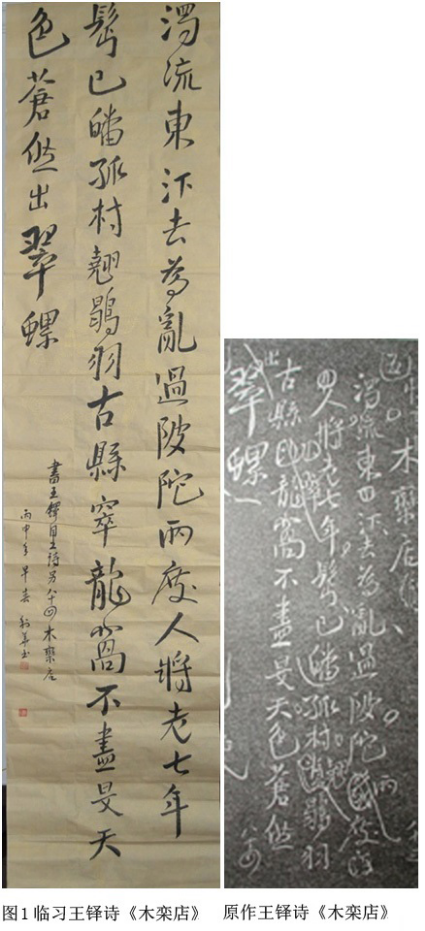 濁流東汴去為亂過陂陀兩度人將老七年
髩已皤孤村翹鶡羽古縣窣龍窩不盡旻天
色蒼然出翠螺
書王鐸詩木欒店
丙申年早春
木欒店
濁流東汴去為亂過陂陀度
人將老七年髩已皤孤村鶡羽
古縣龍窩不盡旻天色蒼然
出翠螺
图1临习王铎诗《木栾店》
原作王铎诗《木栾店》